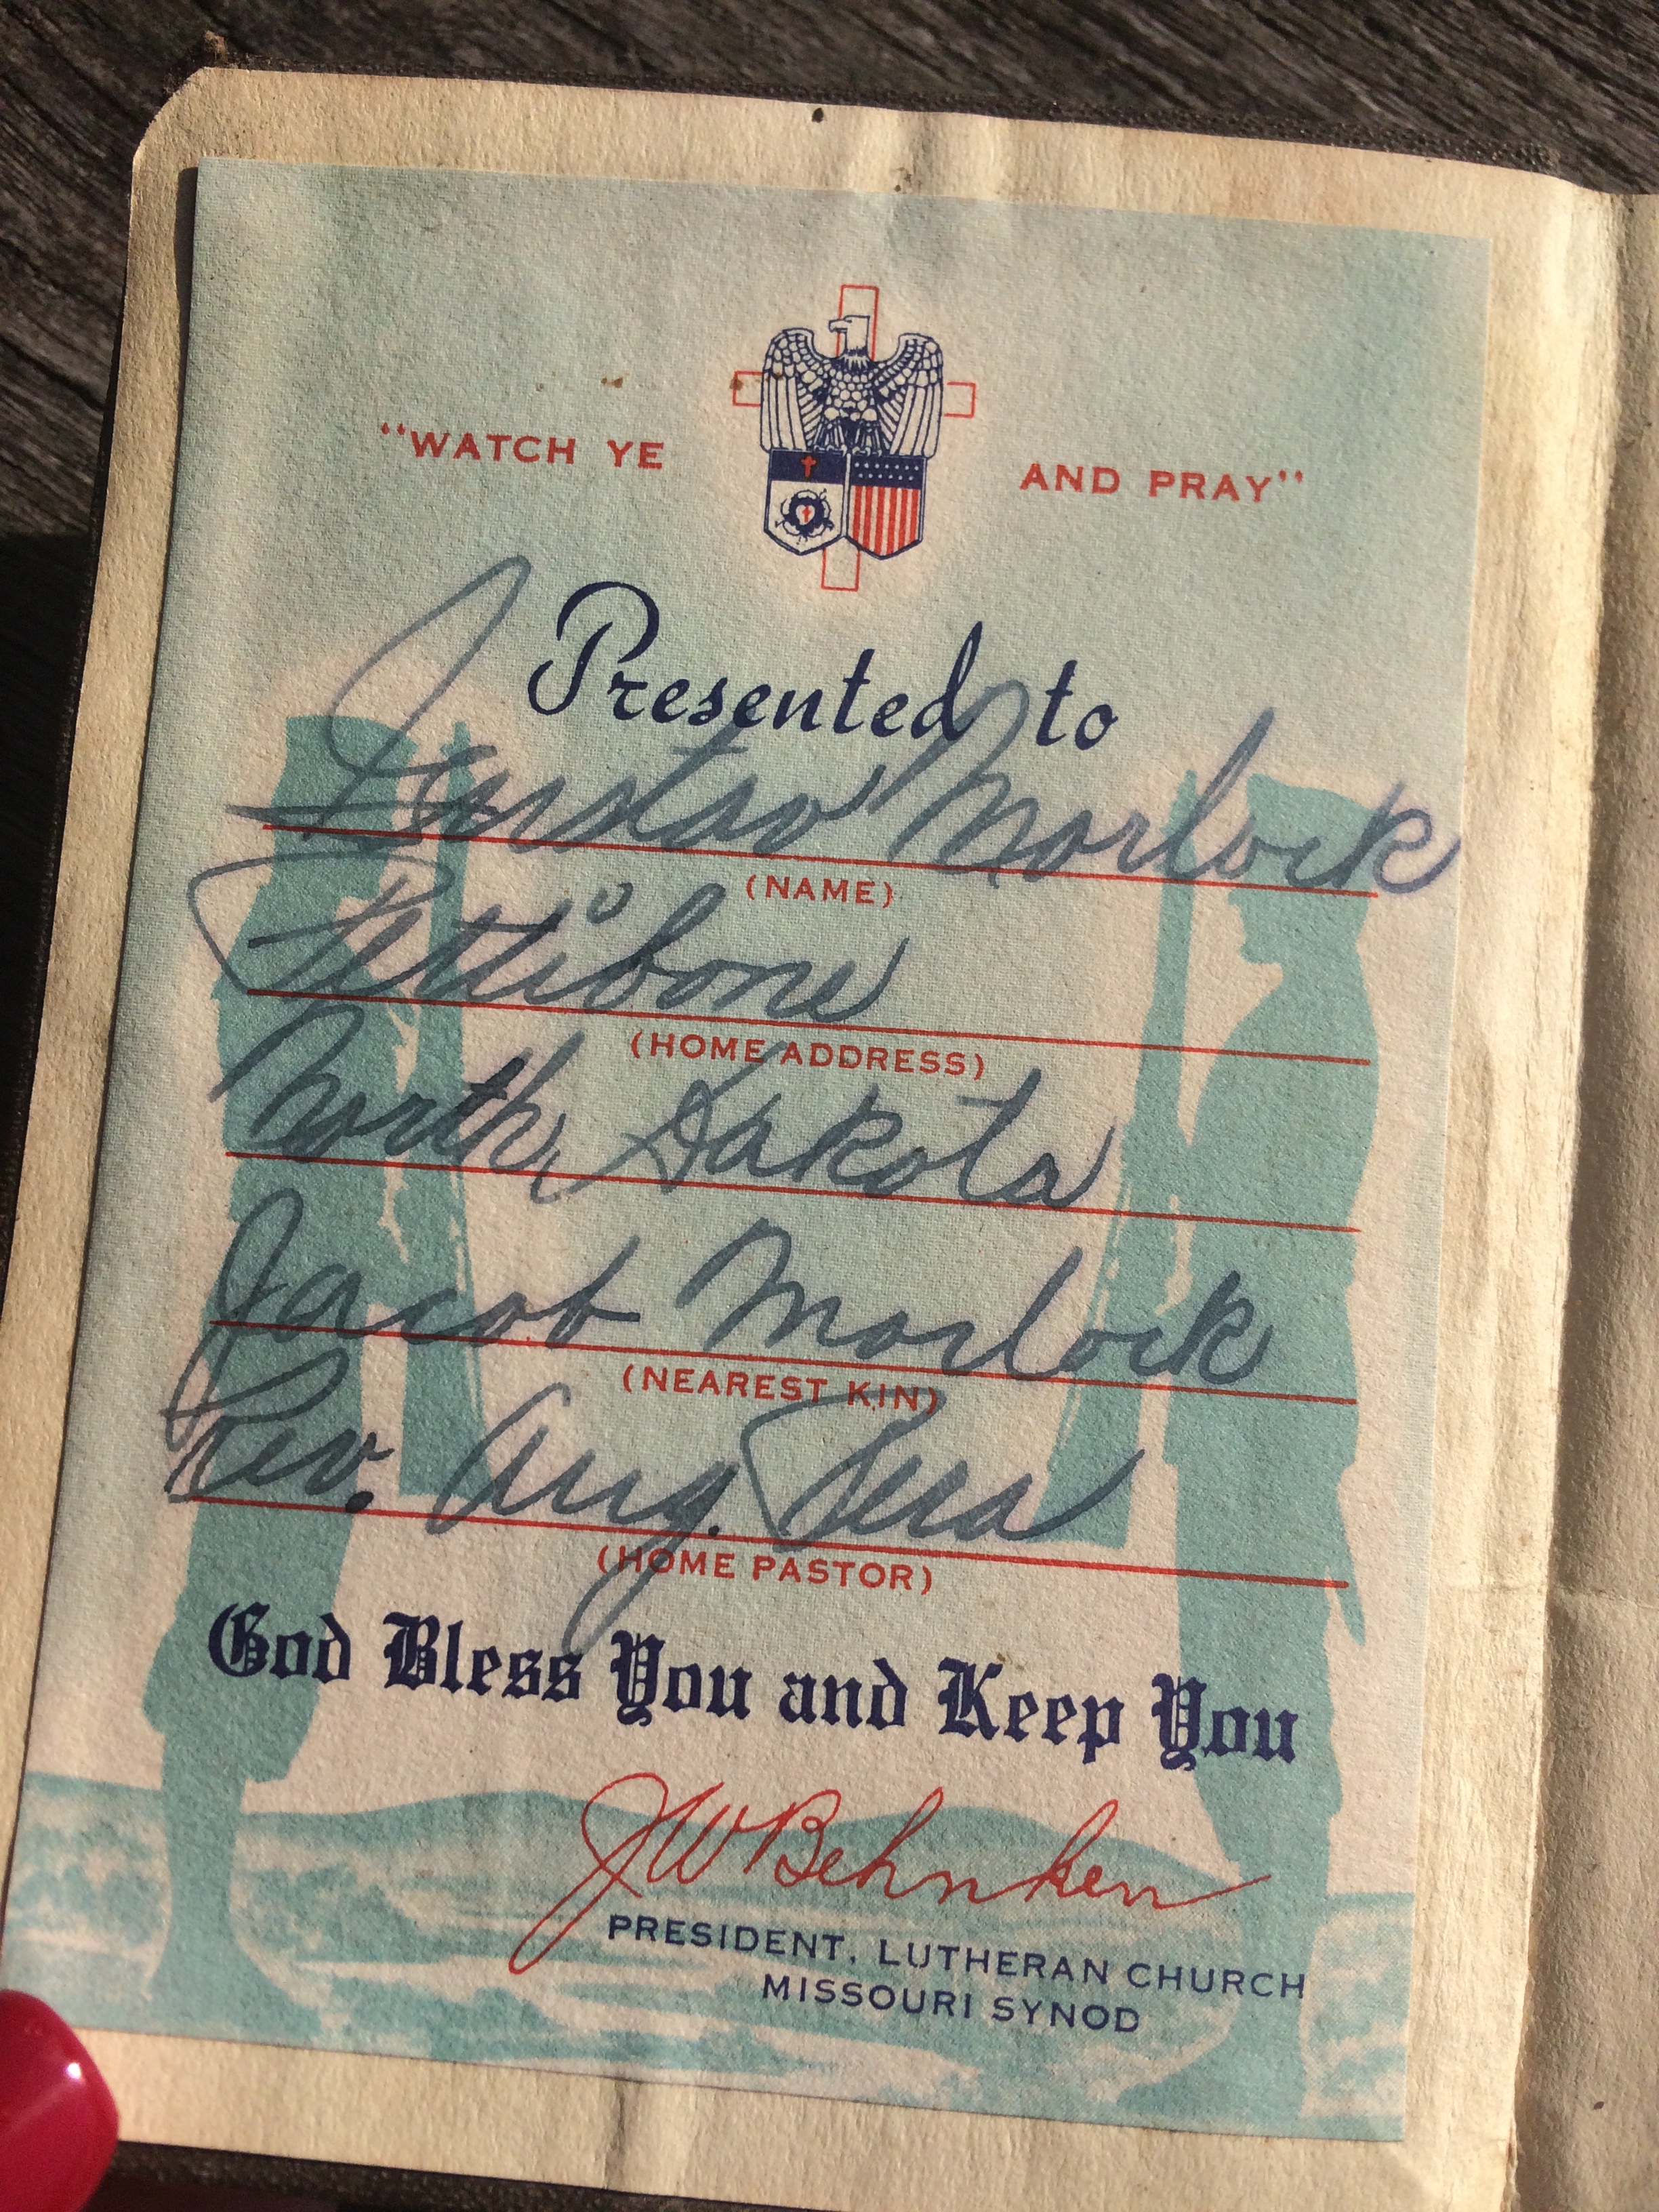 "WATCH YE AND PRAY"
Presented to
Gustav Morlock
(NAME)
Pettibone
(HOME ADDRESS)
North Dakota
Jacob Morlock
(NEAREST KIN)
Rev. Aug.
(HOME PASTOR)
God Bless You and Keep You
JWBehnken
PRESIDENT, LUTHERAN CHURCH
MISSOURI SYNOD